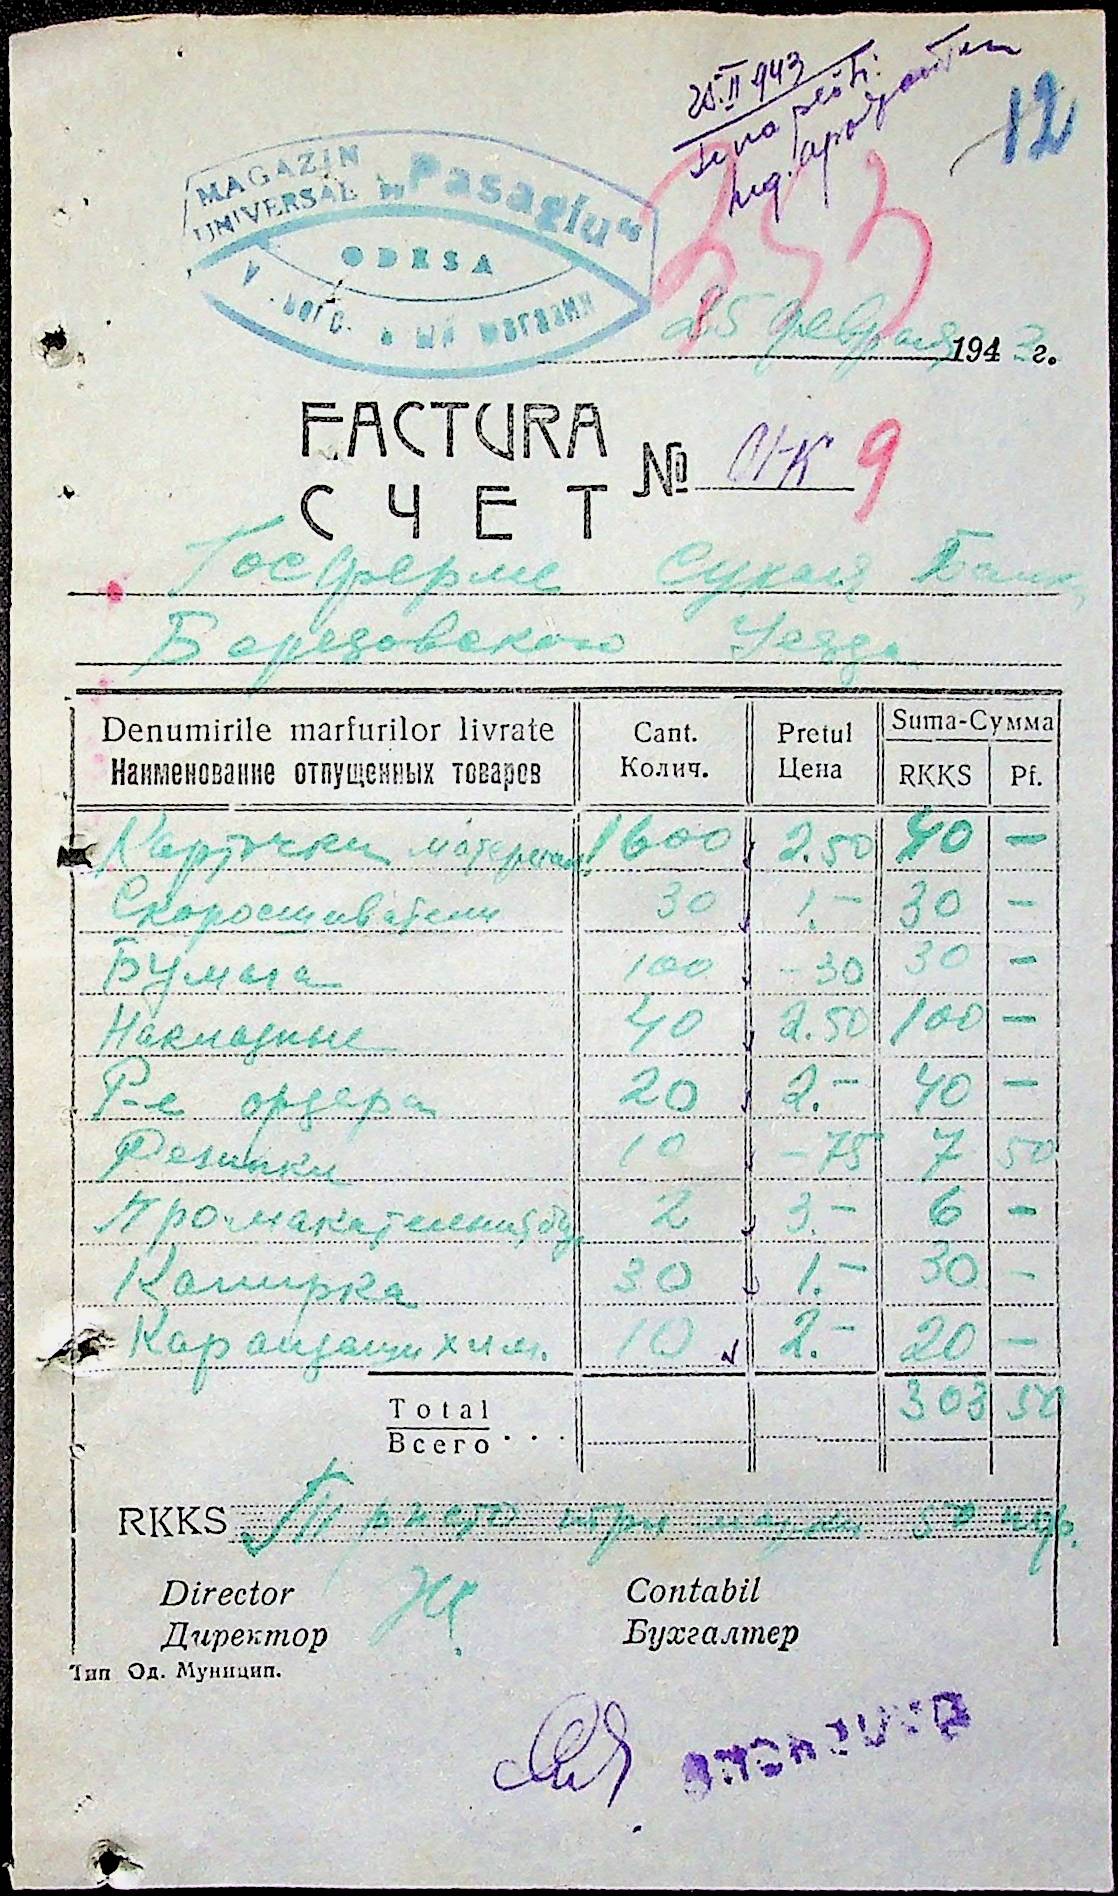 25.II 943
12
253
MAGAZIN
UNIVERSAL „Pasagiu“
ODESA
магазин
25 февраля 1943 г.
FACTURA
СЧЕТ № 9
Госферме Сухая Балка
Березовского Уезда
Denumirile marfurilor livrate Cant. Pretul Suma-Сумма
Наименование отпущенных товаров Колич. Цена RKKS Pf.
Карточки материал. 1600 2.50 40 —
Скоросшиватели 30 1.— 30 —
Бумага 100 -30 30 —
Накладные 40 2.50 100 —
Р-е ордера 20 2.— 40 —
Резинки 10 -75 7 50
Промакательная бу. 2 3.— 6 —
Копирка 30 1.— 30 —
Карандаши хим. 10 2.— 20 —
Total 303 50
Всего . . .
RKKS Триста три марки 50 пф.
Director Contabil
Директор Бухгалтер
Тип Од. Муницип.